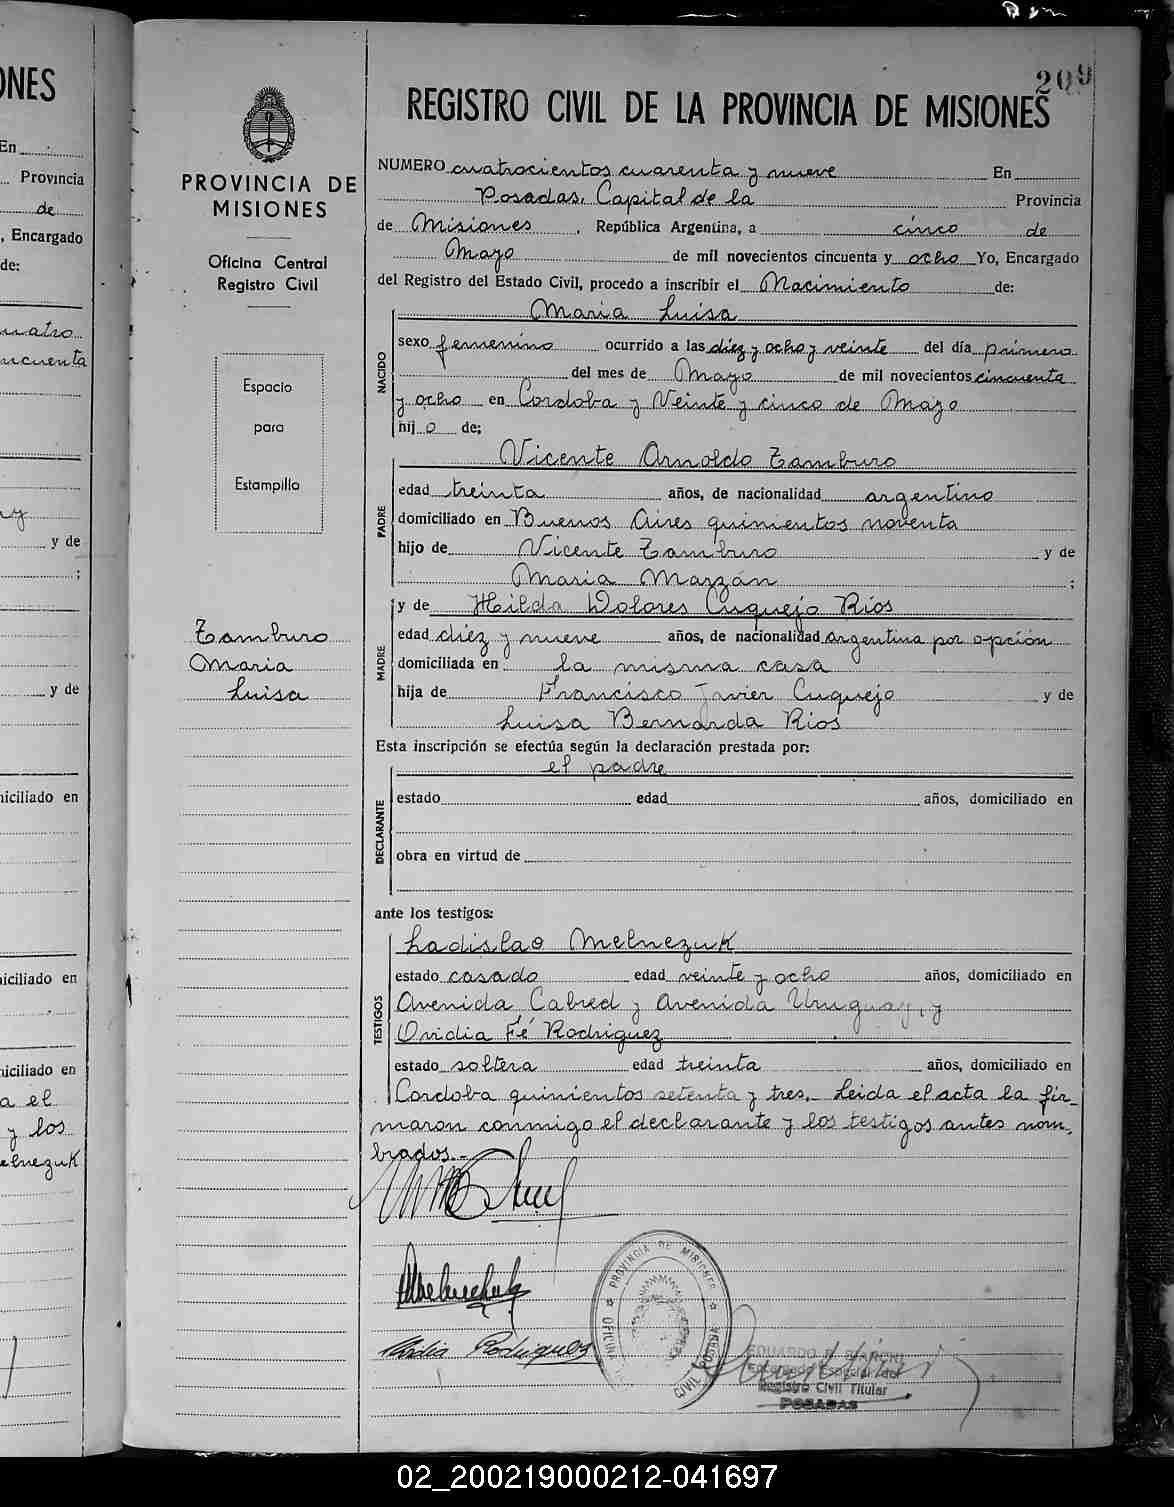 209
REGISTRO CIVIL DE LA PROVINCIA DE MISIONES
PROVINCIA DE
MISIONES
Oficina Central
Registro Civil
Espacio
para
Estampilla
Zamburo
Maria
Luisa
NUMERO cuatrocientos cuarenta y nueve En
Posadas, Capital de la Provincia
de Misiones, República Argentina, a cinco de
Mayo de mil novecientos cincuenta y ocho Yo, Encargado
del Registro del Estado Civil, procedo a inscribir el Nacimiento de:
Maria Luisa
NACIDO
sexo femenino ocurrido a las diez y ocho y veinte del día primero
del mes de Mayo de mil novecientos cincuenta
y ocho en Cordoba y Veinte y cinco de Mayo
hij o de;
Vicente Arnoldo Zamburo
PADRE
edad treinta años, de nacionalidad argentino
domiciliado en Buenos Aires quinientos noventa
hijo de Vicente Zamburo y de
Maria Marzán ;
y de Hilda Dolores Cuquejo Rios
MADRE
edad diez y nueve años, de nacionalidad argentina por opción
domiciliada en la misma casa
hija de Francisco Javier Cuquejo y de
Luisa Bernarda Rios
Esta inscripción se efectúa según la declaración prestada por:
el padre
DECLARANTE
estado edad años, domiciliado en
obra en virtud de
ante los testigos:
TESTIGOS
Ladislao Melnezuk
estado casado edad veinte y ocho años, domiciliado en
Avenida Cabred y Avenida Uruguay, y
Ovidia Fé Rodriguez
estado soltera edad treinta años, domiciliado en
Cordoba quinientos setenta y tres. Leida el acta la fir-
maron conmigo el declarante y los testigos antes nom-
brados.-
Rodriguez
PROVINCIA DE MISIONES
Registro Civil Titular
POSADAS
ONES
En
Provincia
de
, Encargado
de:
cuatro
ncuenta
y de
;
y de
niciliado en
niciliado en
niciliado en
a el
y los
elnezuk
02_200219000212-041697